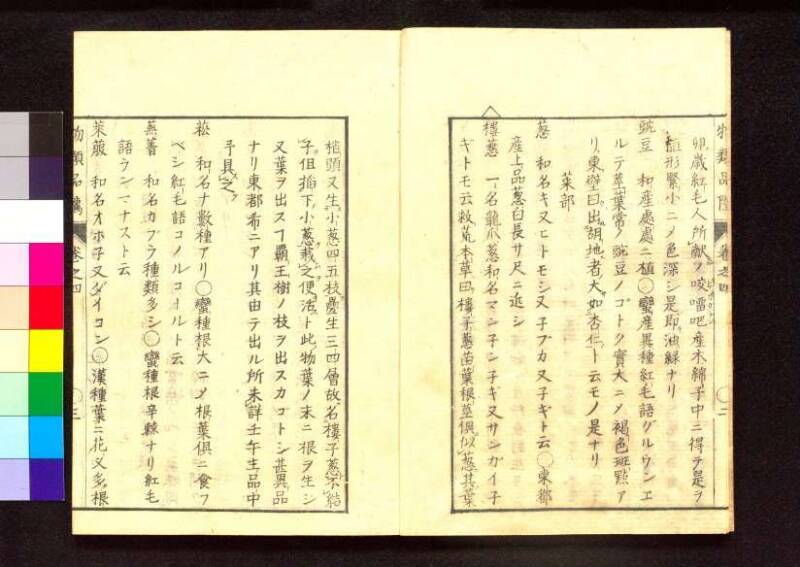 卯歳紅毛人所献ノ咬𠺕吧産木綿子中ニ得テ是ヲ
形緊小ニメ色深シ是即油緑ナリ
豌豆 和産處處ニ植○蠻産異種紅毛語グルウンエ
ルテ莖葉常ノ豌豆ノゴトク實大ニメ褐色斑點ア
リ東壁曰出胡地者大如杏仁ト云モノ是ナリ
菜部
葱 和名キ又ヒトモシ又子ブカ又子ギト云○東都
産上品葱白長サ尺ニ近シ
樓葱 一名龍爪葱和名マン子ン子ギ又サンガイ子
ギトモ云救荒本草曰樓子葱苗葉根莖俱似葱其葉
梢頭又生小葱四五枝疊生三四層故名樓子葱不結
子但掐下小葱栽之便活ト此物葉ノ末ニ根ヲ生シ
又葉ヲ出スヿ覇王樹ノ枝ヲ出スカコトシ甚異品
ナリ東都希ニアリ其由テ出ル所未詳壬午主品中
予具之
菘 和名ナ數種アリ○蠻種根大ニメ根葉俱ニ食フ
ベシ紅毛語コノルコヲルト云
蕪菁 和名カブラ種類多シ○蠻種根辛辣ナリ紅毛
語ランマナスト云
萊菔 和名オホ子又ダイコン○漢種葉ニ花叉多根
物類品隲 巻之四 ○二
物類品隲 巻之四 ○三